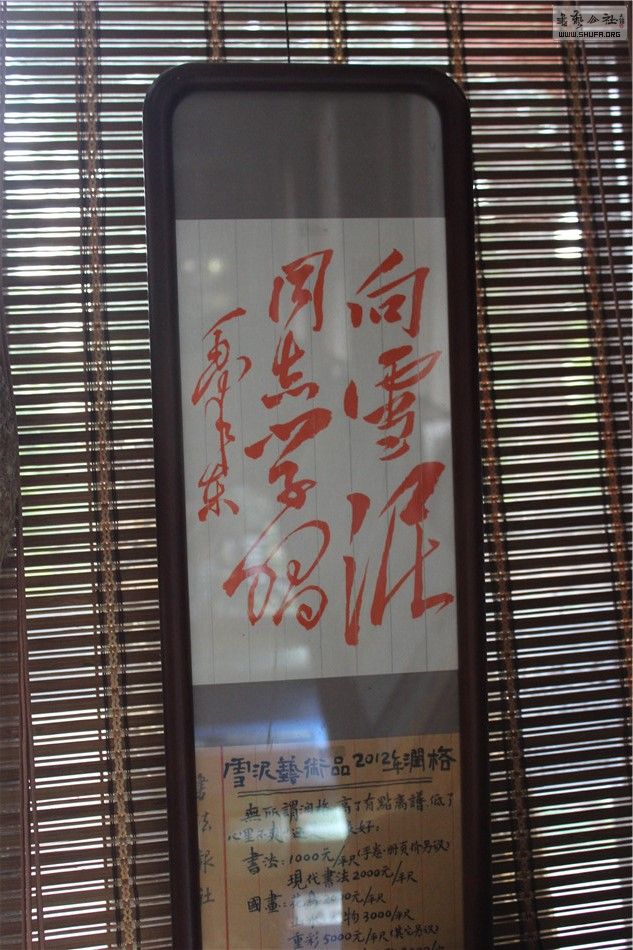 書藝公社
WWW.SHUFA.ORG
向雪泥
同志学習
毛泽东
雪泥藝術品2012年潤格
無所謂润格,高了有點离譜,低了
心里不爽 好:
書法:1000元/平尺(手卷·册页价另议)
現代書法2000元/平尺
國畫:花鳥 00元/平尺
物3000/平尺
重彩5000元/平尺(其它另议)
書法报社